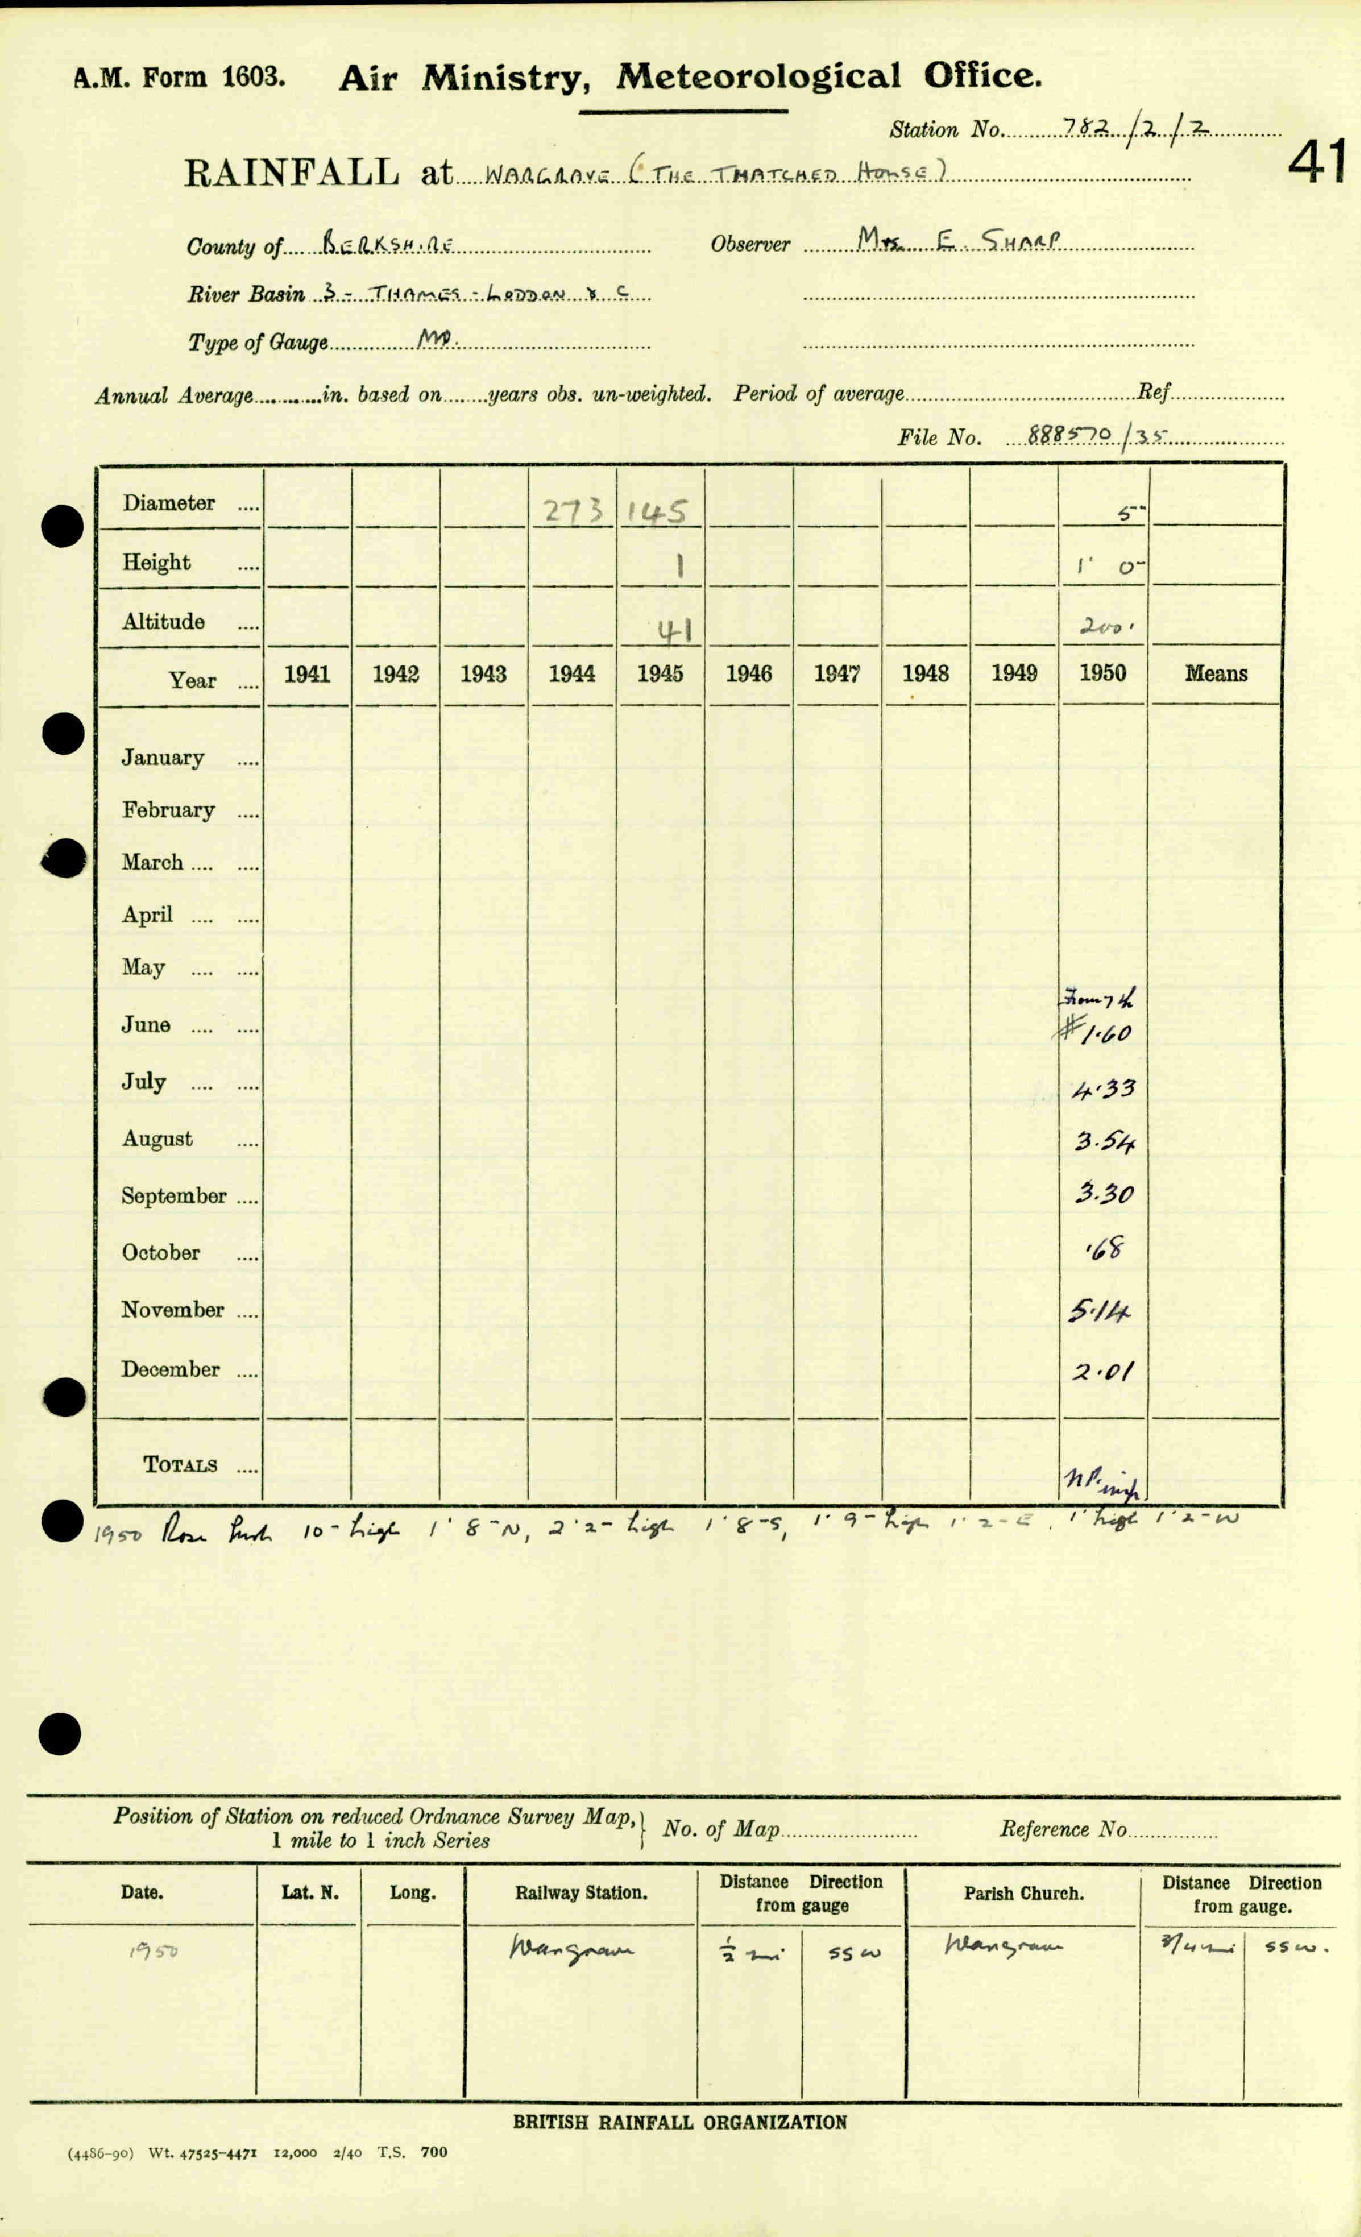 A.M. Form 1603. Air Ministry, Meteorological Office.
Station No. 782/2/2
41
RAINFALL at WARGRAVE (THE THATCHED HOUSE)
County of BERKSHIRE Observer Mrs E. SHARP
River Basin 3 - THAMES - LODDON & C
Type of Gauge MO.
Annual Average in. based on years obs. un-weighted. Period of average Ref
File No. 888570/35
Diameter 273 145 5"
Height 1 1' 0"
Altitude 41 200'
Year 1941 1942 1943 1944 1945 1946 1947 1948 1949 1950 Means
January
February
March
April
May
From 7th
June # 1.60
July 4.33
August 3.54
September 3.30
October .68
November 5.14
December 2.01
TOTALS
1950 Rose bush 10" high 1' 8" N, 2' 2" high 1' 8" S, 1' 9" high 1' 2" E, 1' high 1' 2" W
Position of Station on reduced Ordnance Survey Map, } No. of Map Reference No
1 mile to 1 inch Series
Date. Lat. N. Long. Railway Station. Distance Direction from gauge Parish Church. Distance Direction from gauge.
1950 Wargrave ½ mi SSW Wargrave 3/4 mi SSW.
BRITISH RAINFALL ORGANIZATION
(4486-90) Wt. 47525-4471 12,000 2/40 T.S. 700